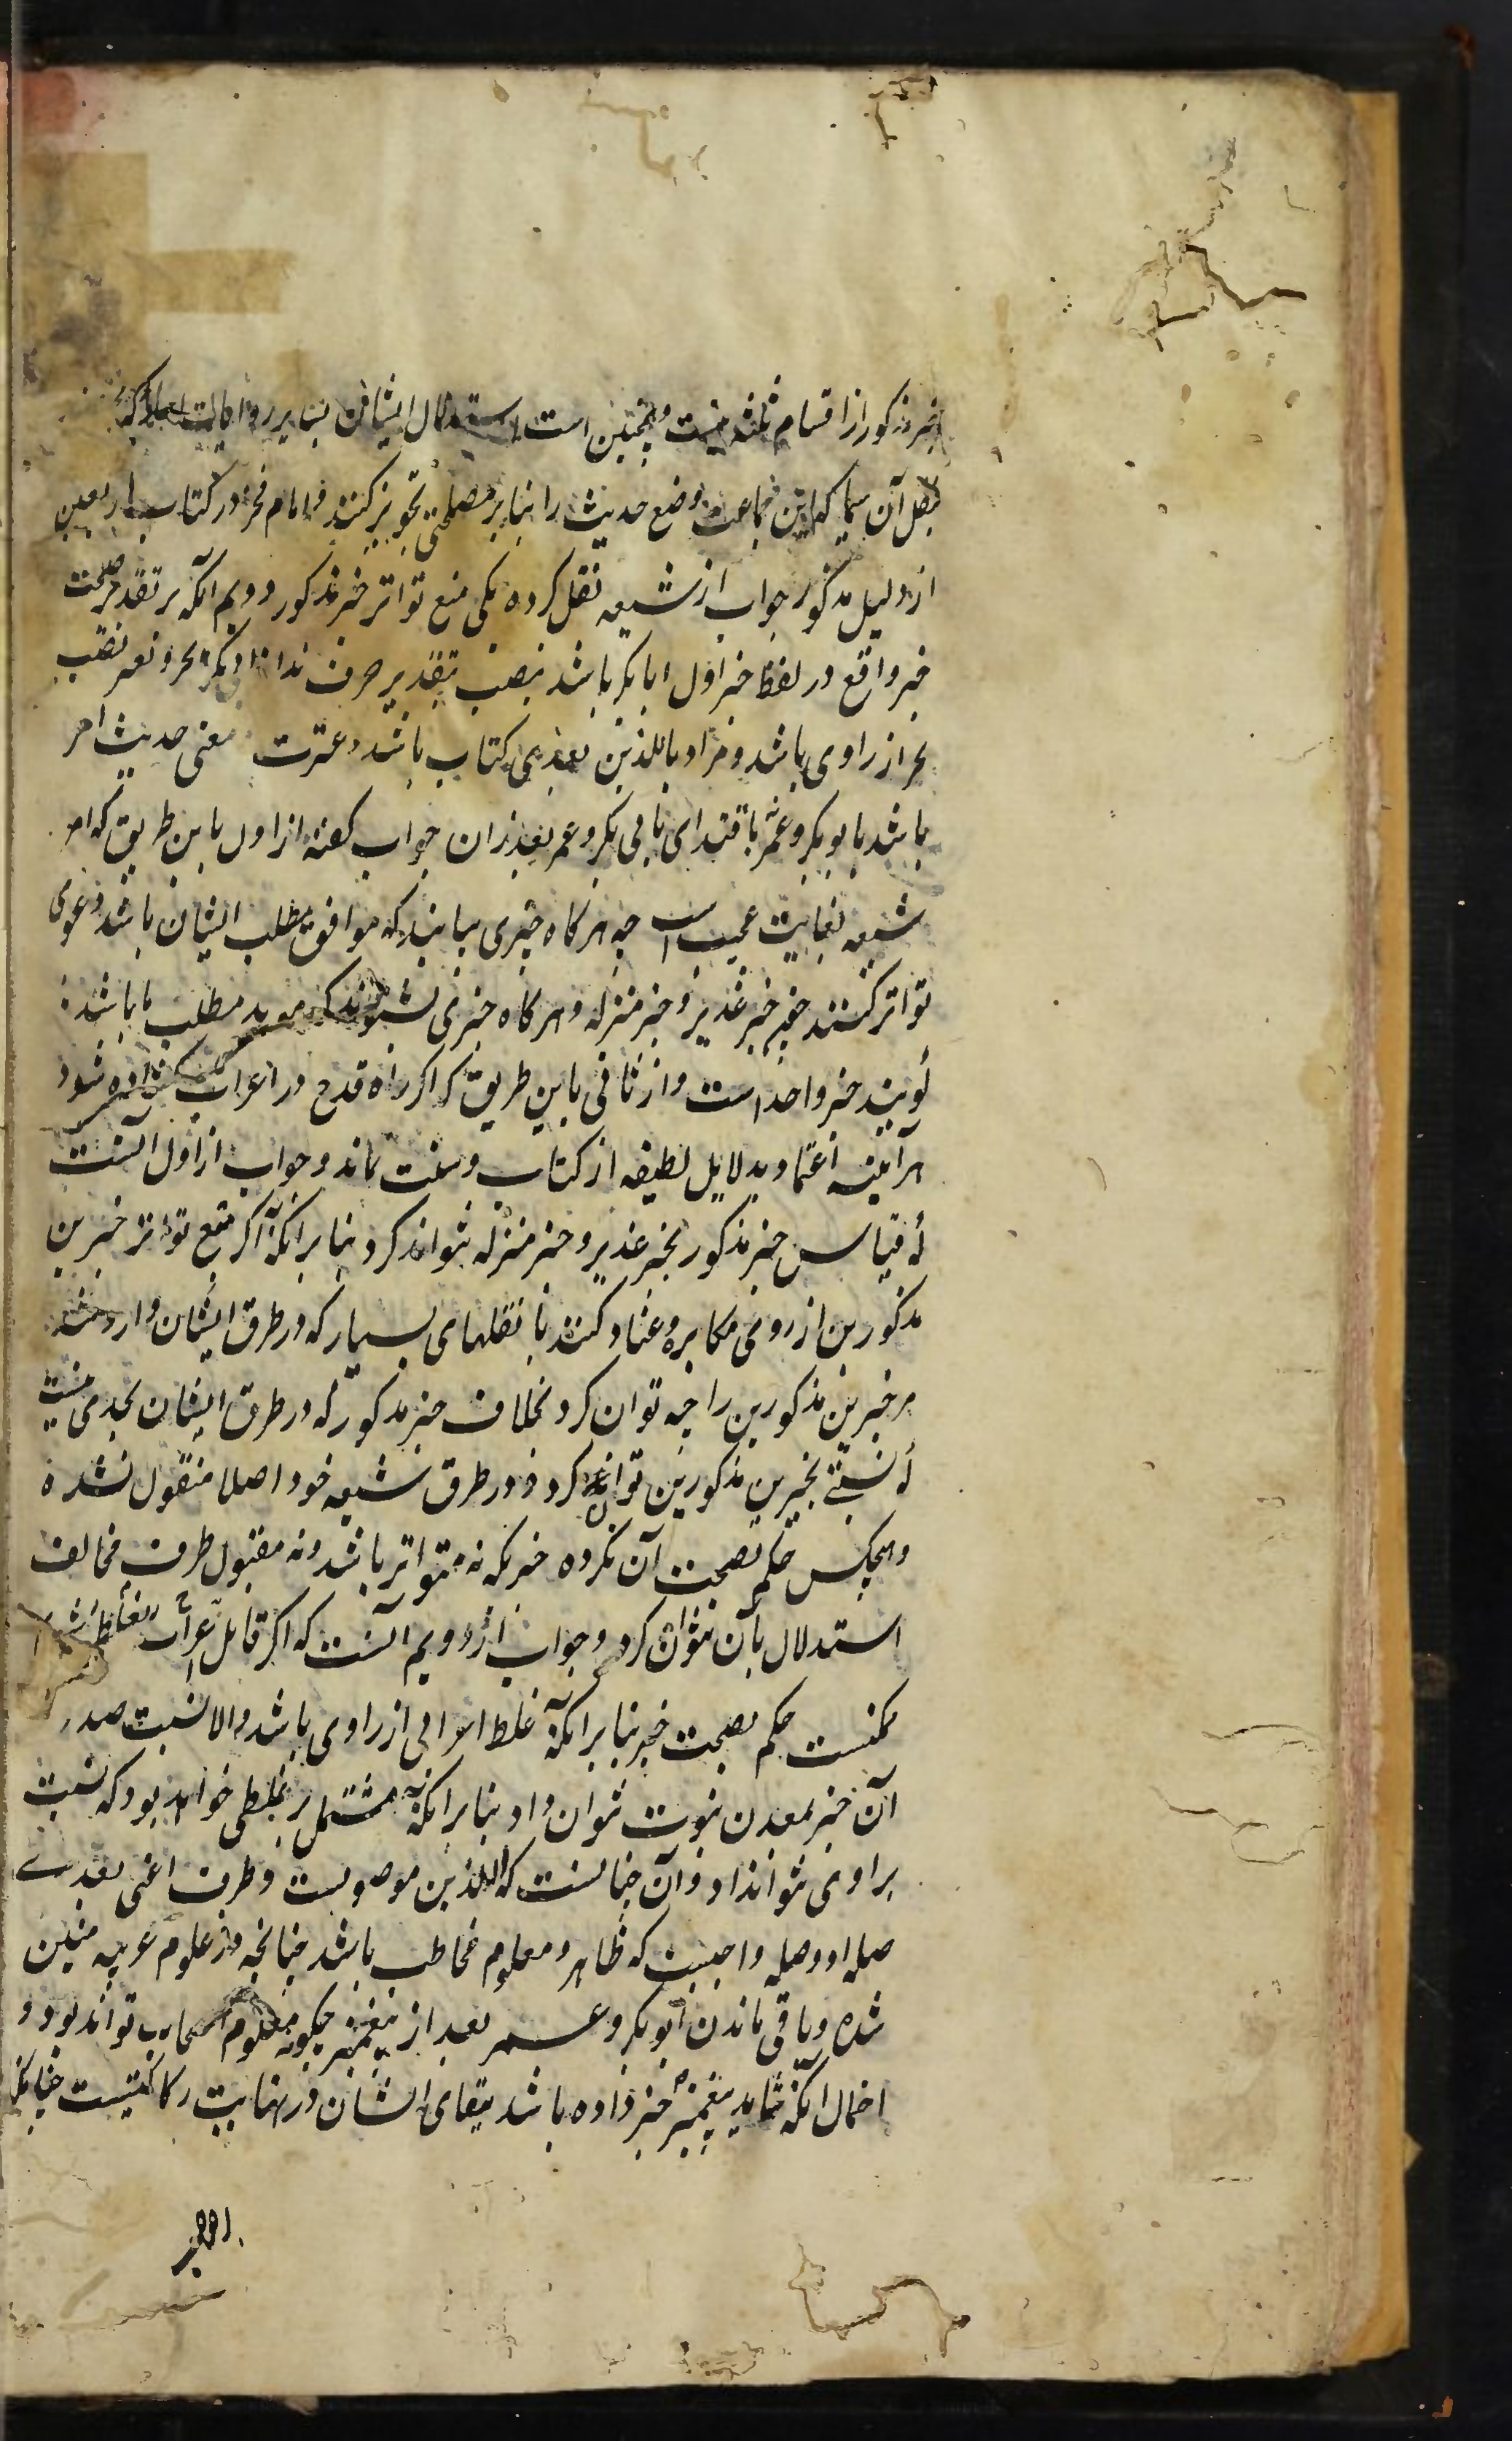 خبر مذکور از اقسام ثلثه نیست و همچنین است استدلال ایشان بسایر روایات
مثل آن سیما که این جماعت وضع حدیث را بنا بر مصلحتی تجویز کنند و امام فخر در کتاب اربعین
از دلیل مذکور جواب از شیعه نقل کرده یکی منع تواتر خبر مذکور دویم آنکه بر تقدیر صحت
خبر واقع در لفظ خبر اول ابابکر باشد بنصب بتقدیر حرف ندا
بجر از راوی باشد و مراد باللذین بعدی کتاب باشد و عترت معنی حدیث امر
باشد بابوبکر و عمر باقتدای بابی بکر و عمر بعد از آن جواب گفته از اول باین طریق که امر
شیعه بغایت عجیب است چه هرگاه خبری بیابند که موافق مطلب ایشان باشد دعوی
تواتر کنند چون خبر غدیر و خبر منزله و هرگاه خبری بشنوند که موید مطلب ما باشد
گویند خبر واحد است و از ثانی باین طریق که اگر راه قدح در اعراب گشاده شود
هرآینه اعتماد بدلایل لطیفه از کتاب و سنت نماند و جواب از اول آنست
که قیاس خبر مذکور بخبر غدیر و خبر منزله نتواند کرد بنا بر آنکه اگر منع تواتر خبرین
مذکورین از روی مکابره و عناد کنند با نقلهای بسیار که در طرق ایشان وارد شده
مر خبرین مذکورین را چه توان کرد بخلاف خبر مذکور که در طرق ایشان بحدی نیست
که نسبتی بخبرین مذکورین توان کرد و در طرق شیعه خود اصلا منقول نشده
و هیچکس حکم بصحت آن نکرده خبریکه نه متواتر باشد و نه مقبول طرف مخالف
استدلال بآن نتوان کرد و جواب از دویم آنست که اگر قابل اعراب
ممکنست حکم بصحت خبر بنا بر آنکه غلط اعرابی از راوی باشد و الا نسبت صدور
آن خبر بمعدن نبوت نتوان داد بنا بر آنکه مشتمل بر غلطی خواهد بود که نسبت
براوی نتوانداد و آن چنانست که اللذین موصولست و ظرف اعنی بعدی
صله او و صله واجبست که ظاهر و معلوم مخاطب باشد چنانچه در علوم عربیه مبین
شده و باقی ماندن ابوبکر و عمر بعد از پیغمبر چگونه معلوم اصحاب تواند بود و
احتمال آنکه شاید پیغمبر خبر داده باشد ببقای ایشان در نهایت رکاکتیست چنانکه